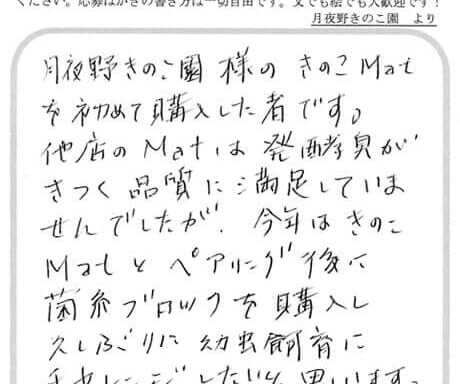 ください。応募はがきの書き方は一切自由です。文でも絵でも大歓迎です！
月夜野きのこ園 より
月夜野きのこ園 様の きのこMat
を初めて購入した者です。
他店のMatは 発酵臭が
きつく 品質に満足していま
せんでしたが、今年は きのこ
Matと ペアリング後に
菌糸ブロックを購入し
久しぶりに 幼虫飼育に
チャレンジしたいと思います。